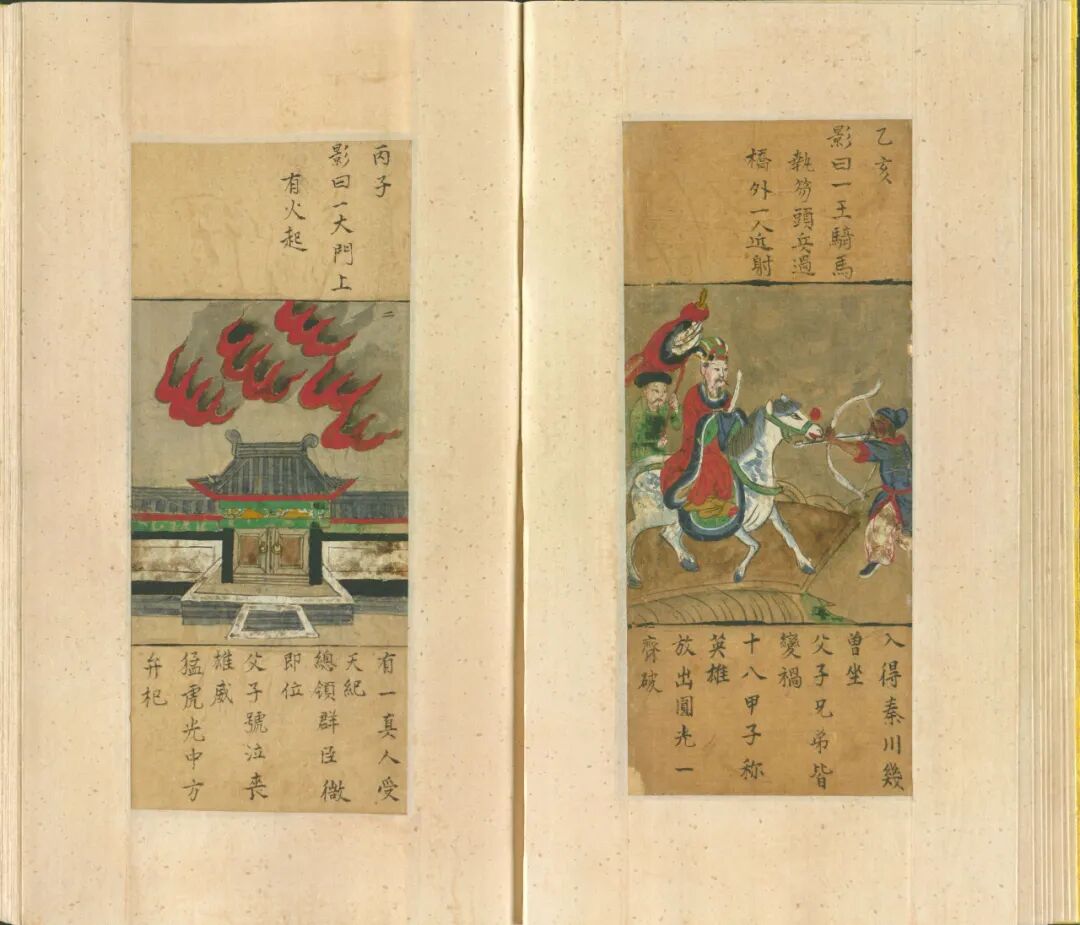 乙亥
影曰一王騎馬
執笏頭兵過
橋外一人近射
入得秦川幾
曽坐
父子兄弟皆
變禍
十八甲子称
英雄
放出圓光一
齊破
丙子
影曰一大門上
有火起
二
有一真人受
天紀
總領群臣
即位
父子號泣喪
雄威
猛虎光中方
弁